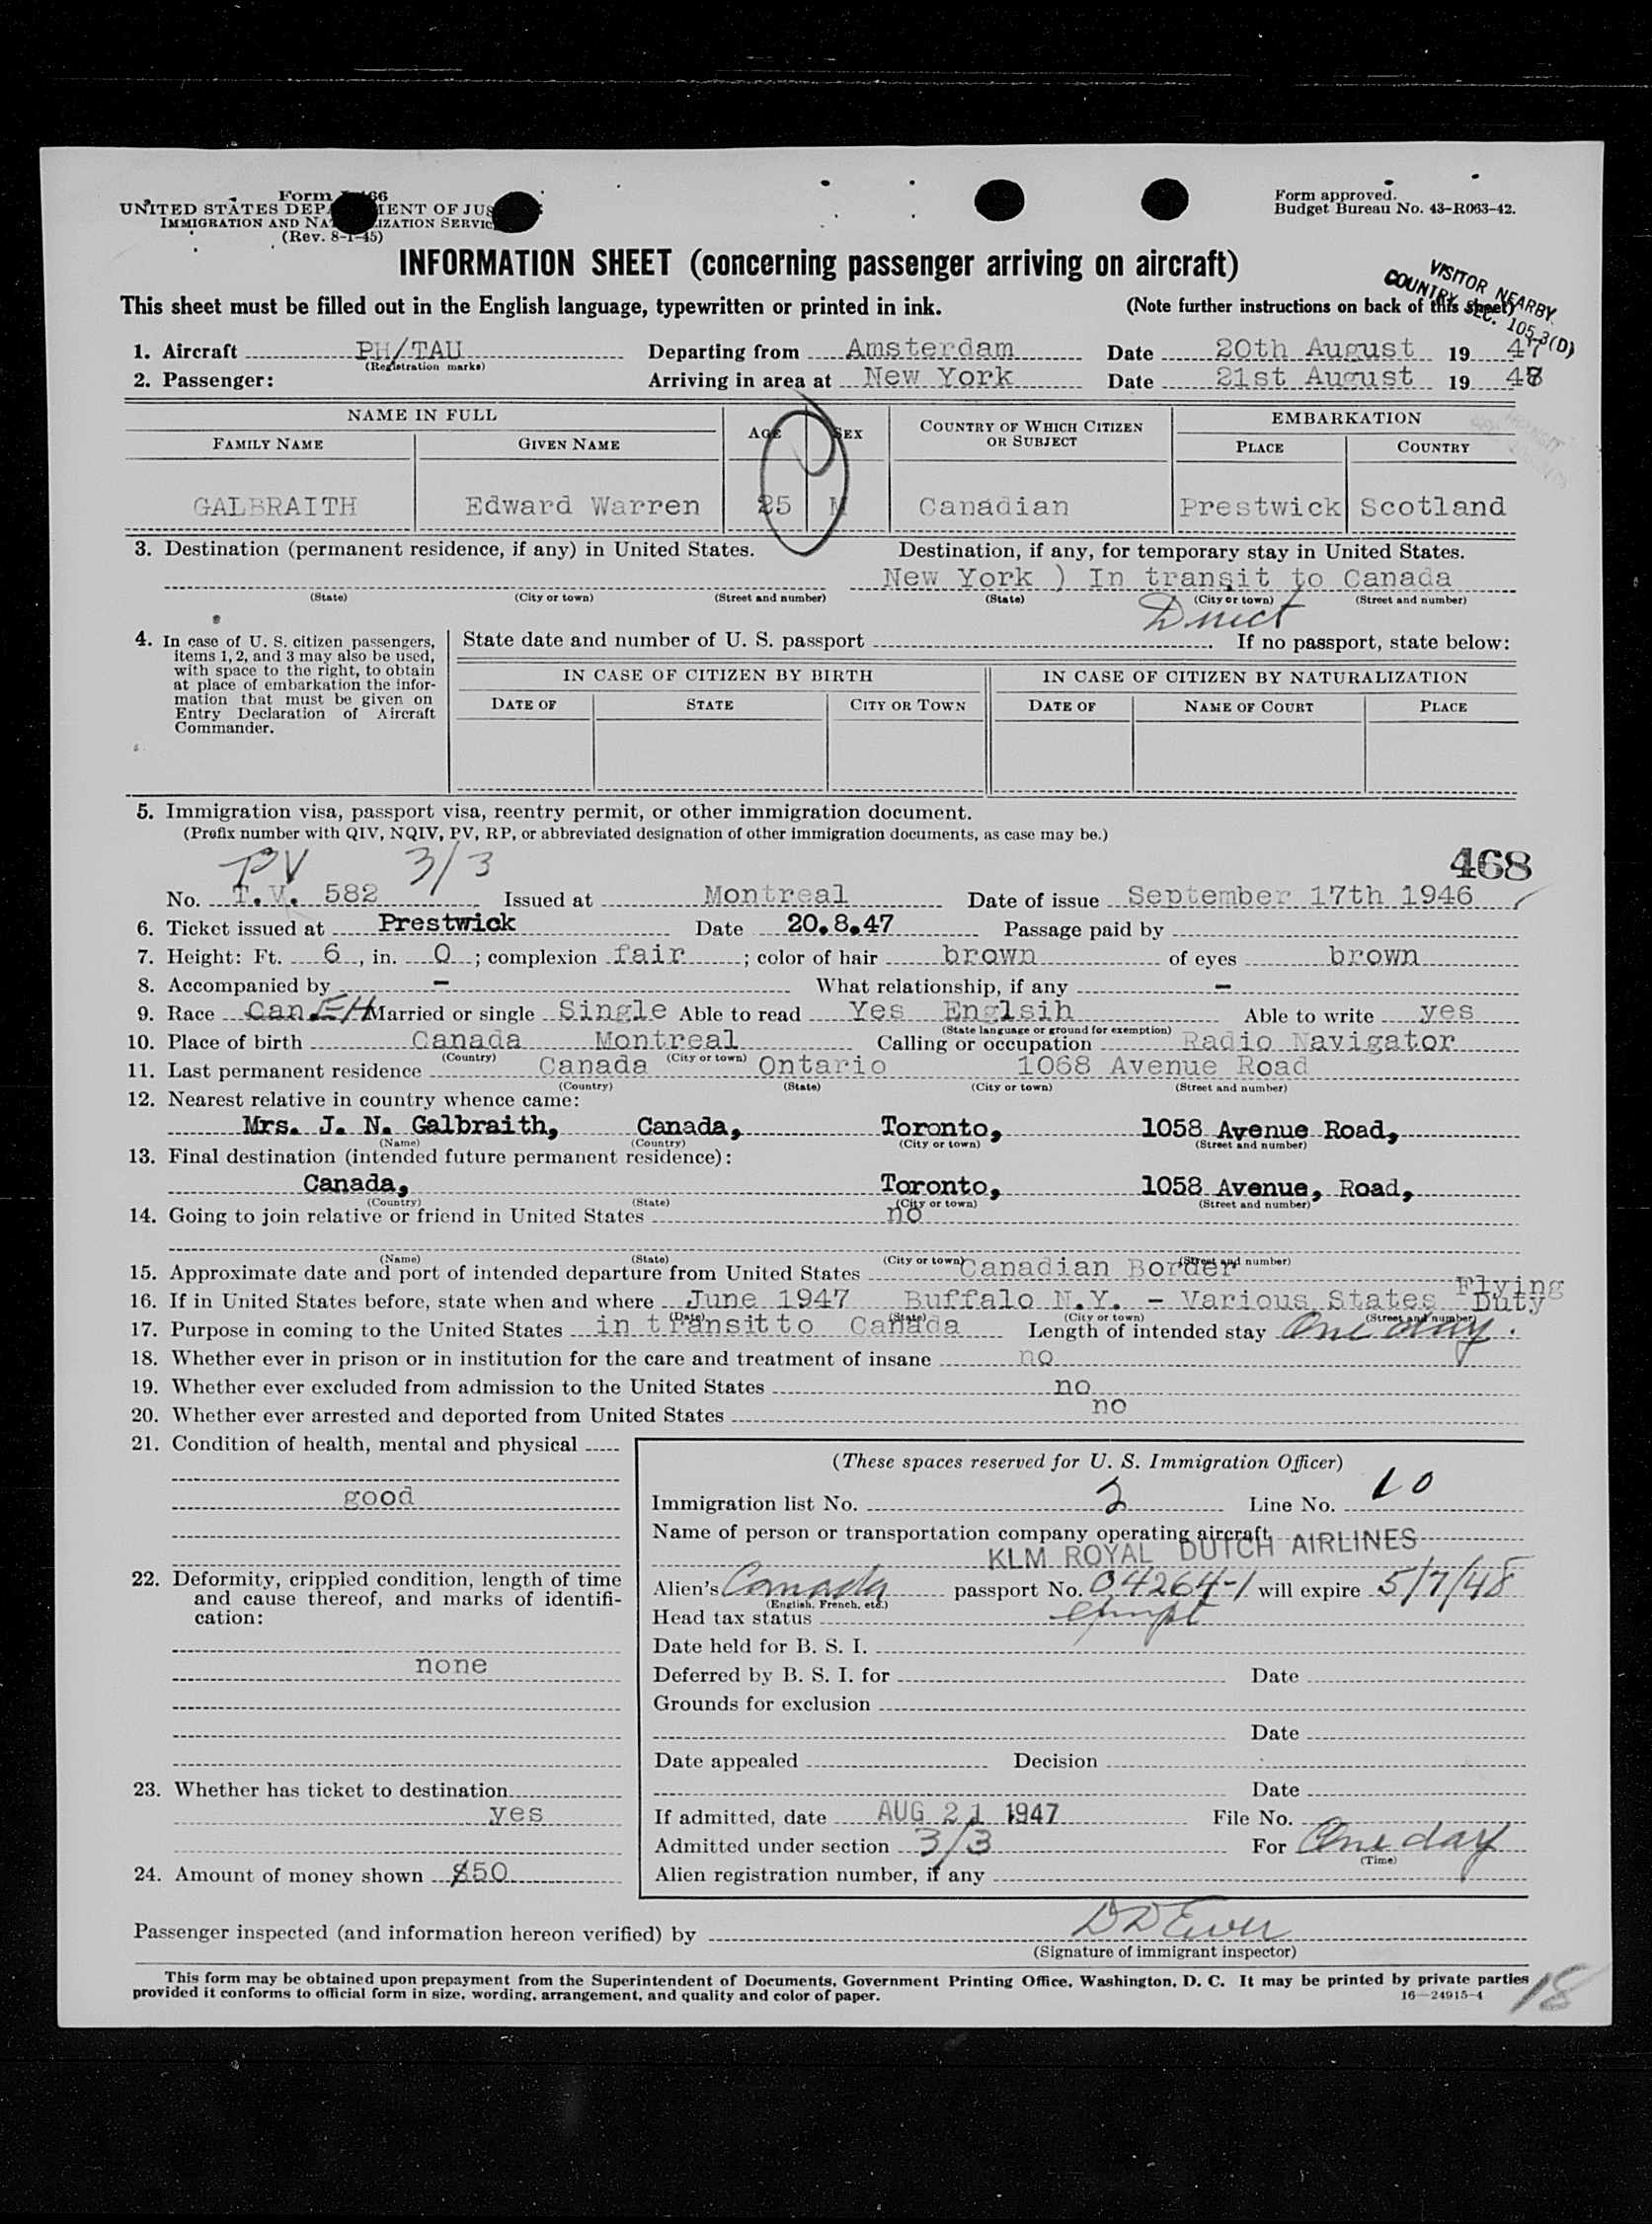 Form 66
UNITED STATES DEP MENT OF JUS
IMMIGRATION AND NA IZATION SERVIC
(Rev. 8-1-45)
Form approved.
Budget Bureau No. 43-R063-42.
INFORMATION SHEET (concerning passenger arriving on aircraft)
VISITOR NEARBY
COUNTRY SEC. 105.3(D)
This sheet must be filled out in the English language, typewritten or printed in ink. (Note further instructions on back of this sheet)
1. Aircraft PH/TAU Departing from Amsterdam Date 20th August 19 47
(Registration marks)
2. Passenger: Arriving in area at New York Date 21st August 19 47
NAME IN FULL AGE SEX COUNTRY OF WHICH CITIZEN OR SUBJECT EMBARKATION
FAMILY NAME GIVEN NAME PLACE COUNTRY
GALBRAITH Edward Warren 25 M Canadian Prestwick Scotland
3. Destination (permanent residence, if any) in United States. Destination, if any, for temporary stay in United States.
New York ) In transit to Canada
(State) (City or town) (Street and number) (State) (City or town) (Street and number)
Direct
4. In case of U. S. citizen passengers, items 1, 2, and 3 may also be used, with space to the right, to obtain at place of embarkation the information that must be given on Entry Declaration of Aircraft Commander.
State date and number of U. S. passport . If no passport, state below:
IN CASE OF CITIZEN BY BIRTH IN CASE OF CITIZEN BY NATURALIZATION
DATE OF STATE CITY OR TOWN DATE OF NAME OF COURT PLACE
5. Immigration visa, passport visa, reentry permit, or other immigration document.
(Prefix number with QIV, NQIV, PV, RP, or abbreviated designation of other immigration documents, as case may be.)
PV 3/3 468
No. T.V. 582 Issued at Montreal Date of issue September 17th 1946
6. Ticket issued at Prestwick Date 20.8.47 Passage paid by
7. Height: Ft. 6, in. 0; complexion fair; color of hair brown of eyes brown
8. Accompanied by - What relationship, if any -
9. Race Can. EH Married or single Single Able to read Yes Englsih Able to write yes
(State language or ground for exemption)
10. Place of birth Canada Montreal Calling or occupation Radio Navigator
(Country) (City or town)
11. Last permanent residence Canada Ontario 1068 Avenue Road
(Country) (State) (City or town) (Street and number)
12. Nearest relative in country whence came:
Mrs. J. N. Galbraith, Canada, Toronto, 1058 Avenue Road,
(Name) (Country) (City or town) (Street and number)
13. Final destination (intended future permanent residence):
Canada, Toronto, 1058 Avenue, Road,
(Country) (State) (City or town) (Street and number)
14. Going to join relative or friend in United States no
(Name) (State) (City or town) (Street and number)
15. Approximate date and port of intended departure from United States Canadian Border
16. If in United States before, state when and where June 1947 Buffalo N.Y. - Various States Flying Duty
(Date) (State) (City or town) (Street and number)
17. Purpose in coming to the United States in transit to Canada Length of intended stay One day.
18. Whether ever in prison or in institution for the care and treatment of insane no
19. Whether ever excluded from admission to the United States no
20. Whether ever arrested and deported from United States no
21. Condition of health, mental and physical
good
22. Deformity, crippled condition, length of time and cause thereof, and marks of identification:
none
23. Whether has ticket to destination
yes
24. Amount of money shown $50
(These spaces reserved for U. S. Immigration Officer)
Immigration list No. 2 Line No. 10
Name of person or transportation company operating aircraft
KLM ROYAL DUTCH AIRLINES
Alien's Canada passport No. 04264-1 will expire 5/7/48
(English, French, etc.)
Head tax status exmpt
Date held for B. S. I.
Deferred by B. S. I. for Date
Grounds for exclusion
Date
Date appealed Decision
Date
If admitted, date AUG 21 1947 File No.
Admitted under section 3/3 For One day
(Time)
Alien registration number, if any
Passenger inspected (and information hereon verified) by
(Signature of immigrant inspector)
This form may be obtained upon prepayment from the Superintendent of Documents, Government Printing Office, Washington, D. C. It may be printed by private parties
provided it conforms to official form in size, wording, arrangement, and quality and color of paper. 16—24915-4
18